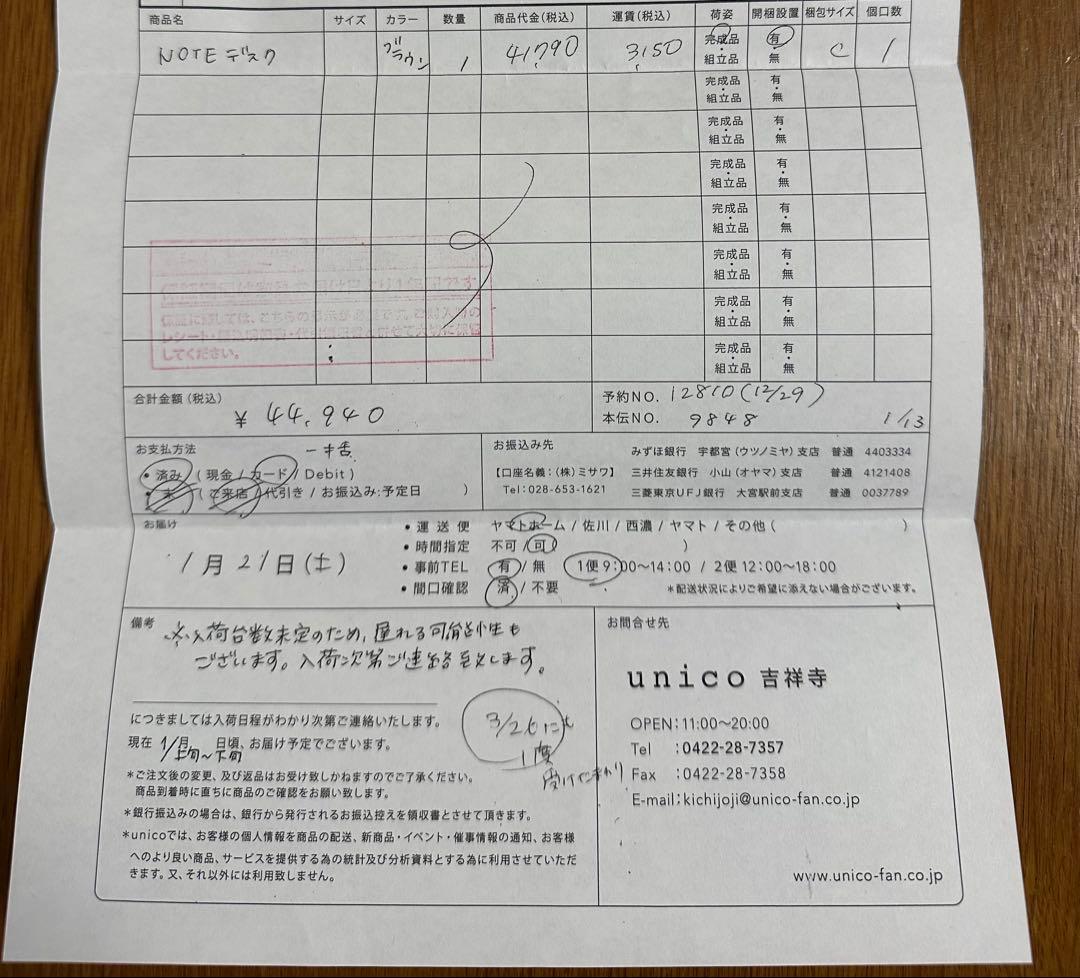 商品名 サイズ カラー 数量 商品代金(税込) 運賃(税込) 荷姿 開梱設置 梱包サイズ 個口数
NOTE デスク ブラウン 1 41,790 3,150 完成品・組立品 有・無 C 1
完成品・組立品 有・無
完成品・組立品 有・無
完成品・組立品 有・無
完成品・組立品 有・無
完成品・組立品 有・無
完成品・組立品 有・無
完成品・組立品 有・無
レシート
してください。
合計金額(税込)
¥ 44,940
予約NO. 12810(12/29)
本伝NO. 9848 1/13
お支払方法 一括
・済み (現金 / カード / Debit)
・未 (ご来店 / 代引き / お振込み:予定日 )
お振込み先
【口座名義:(株)ミサワ】
Tel:028-653-1621
みずほ銀行 宇都宮(ウツノミヤ)支店 普通 4403334
三井住友銀行 小山(オヤマ)支店 普通 4121408
三菱東京UFJ銀行 大宮駅前支店 普通 0037789
お届け
1月21日(土)
・運送便 ヤマトホーム / 佐川 / 西濃 / ヤマト / その他 ( )
・時間指定 不可 / 可( )
・事前TEL 有 / 無 1便 9:00〜14:00 / 2便 12:00〜18:00
・間口確認 済 / 不要 *配送状況によりご希望に添えない場合がございます。
備考
※入荷台数未定のため、遅れる可能性も
ございます。入荷次第ご連絡致します。
につきましては入荷日程がわかり次第ご連絡いたします。
現在 1/月 上旬〜下旬 日頃、お届け予定でございます。
3/26にも
1度
*ご注文後の変更、及び返品はお受け致しかねますのでご了承ください。
商品到着時に直ちに商品のご確認をお願い致します。
*銀行振込みの場合は、銀行から発行されるお振込控えを領収書とさせて頂きます。
*unicoでは、お客様の個人情報を商品の配送、新商品・イベント・催事情報の通知、お客様
へのより良い商品、サービスを提供する為の統計及び分析資料とする為に利用させていただ
きます。又、それ以外には利用致しません。
お問合せ先
unico 吉祥寺
OPEN:11:00〜20:00
Tel :0422-28-7357
Fax :0422-28-7358
E-mail:kichijoji@unico-fan.co.jp
www.unico-fan.co.jp